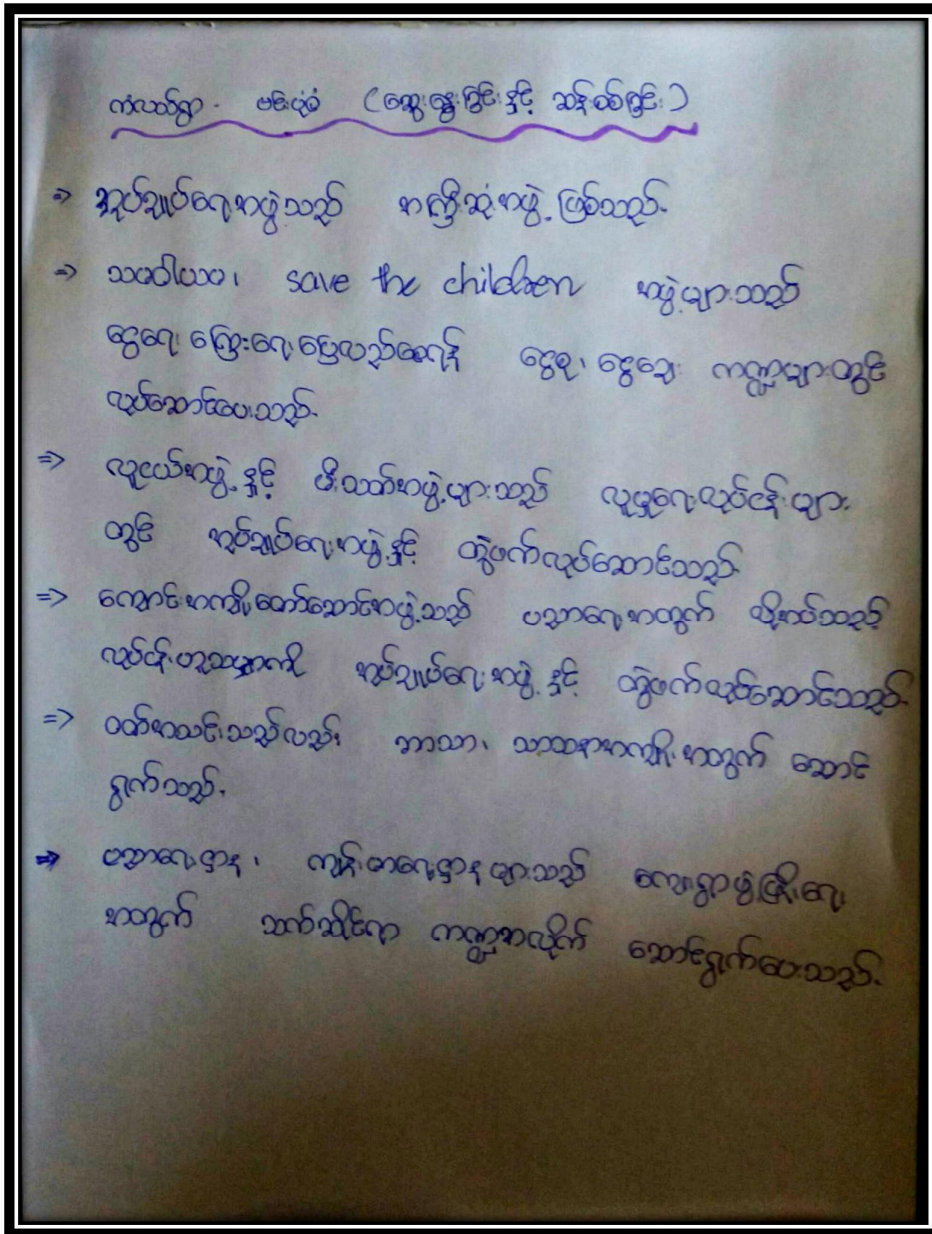 ကံလယ်ရွာ - ဗင်းပုံစံ (ဆွေးနွေးခြင်းနှင့် ဆန်းစစ်ခြင်း)
⇒ အုပ်ချုပ်ရေးအဖွဲ့သည် အကြီးဆုံးအဖွဲ့ ဖြစ်သည်.
⇒ သဝဝါယမ၊ save the children အဖွဲ့များသည်
ငွေရေး ကြေးရေးပြေလည်စေရန် ငွေစု၊ ငွေချေး ကဏ္ဍများတွင်
လုပ်ဆောင်ပေးသည်.
⇒ လူငယ်အဖွဲ့ နှင့် မီးသတ်အဖွဲ့များသည် လူမှုရေးလုပ်ငန်းများ
တွင် အုပ်ချုပ်ရေးအဖွဲ့နှင့် တွဲဖက်လုပ်ဆောင်သည်.
⇒ ကျောင်းအကျိုးတော်ဆောင်အဖွဲ့သည် ပညာရေးအတွက် လိုအပ်သည့်
လုပ်ငန်းဟူသမျှကို အုပ်ချုပ်ရေးအဖွဲ့ နှင့် တွဲဖက်လုပ်ဆောင်သည်.
⇒ ဝတ်အသင်းသည်လည်း ဘာသာ၊ သာသနာအကျိုးအတွက် ဆောင်
ရွက်သည်.
⇒ ပညာရေးဌာန၊ ကျန်းမာရေးဌာနများသည် ကျေးရွာဖွံ့ဖြိုးရေး
အတွက် သက်ဆိုင်ရာ ကဏ္ဍအလိုက် ဆောင်ရွက်ပေးသည်.